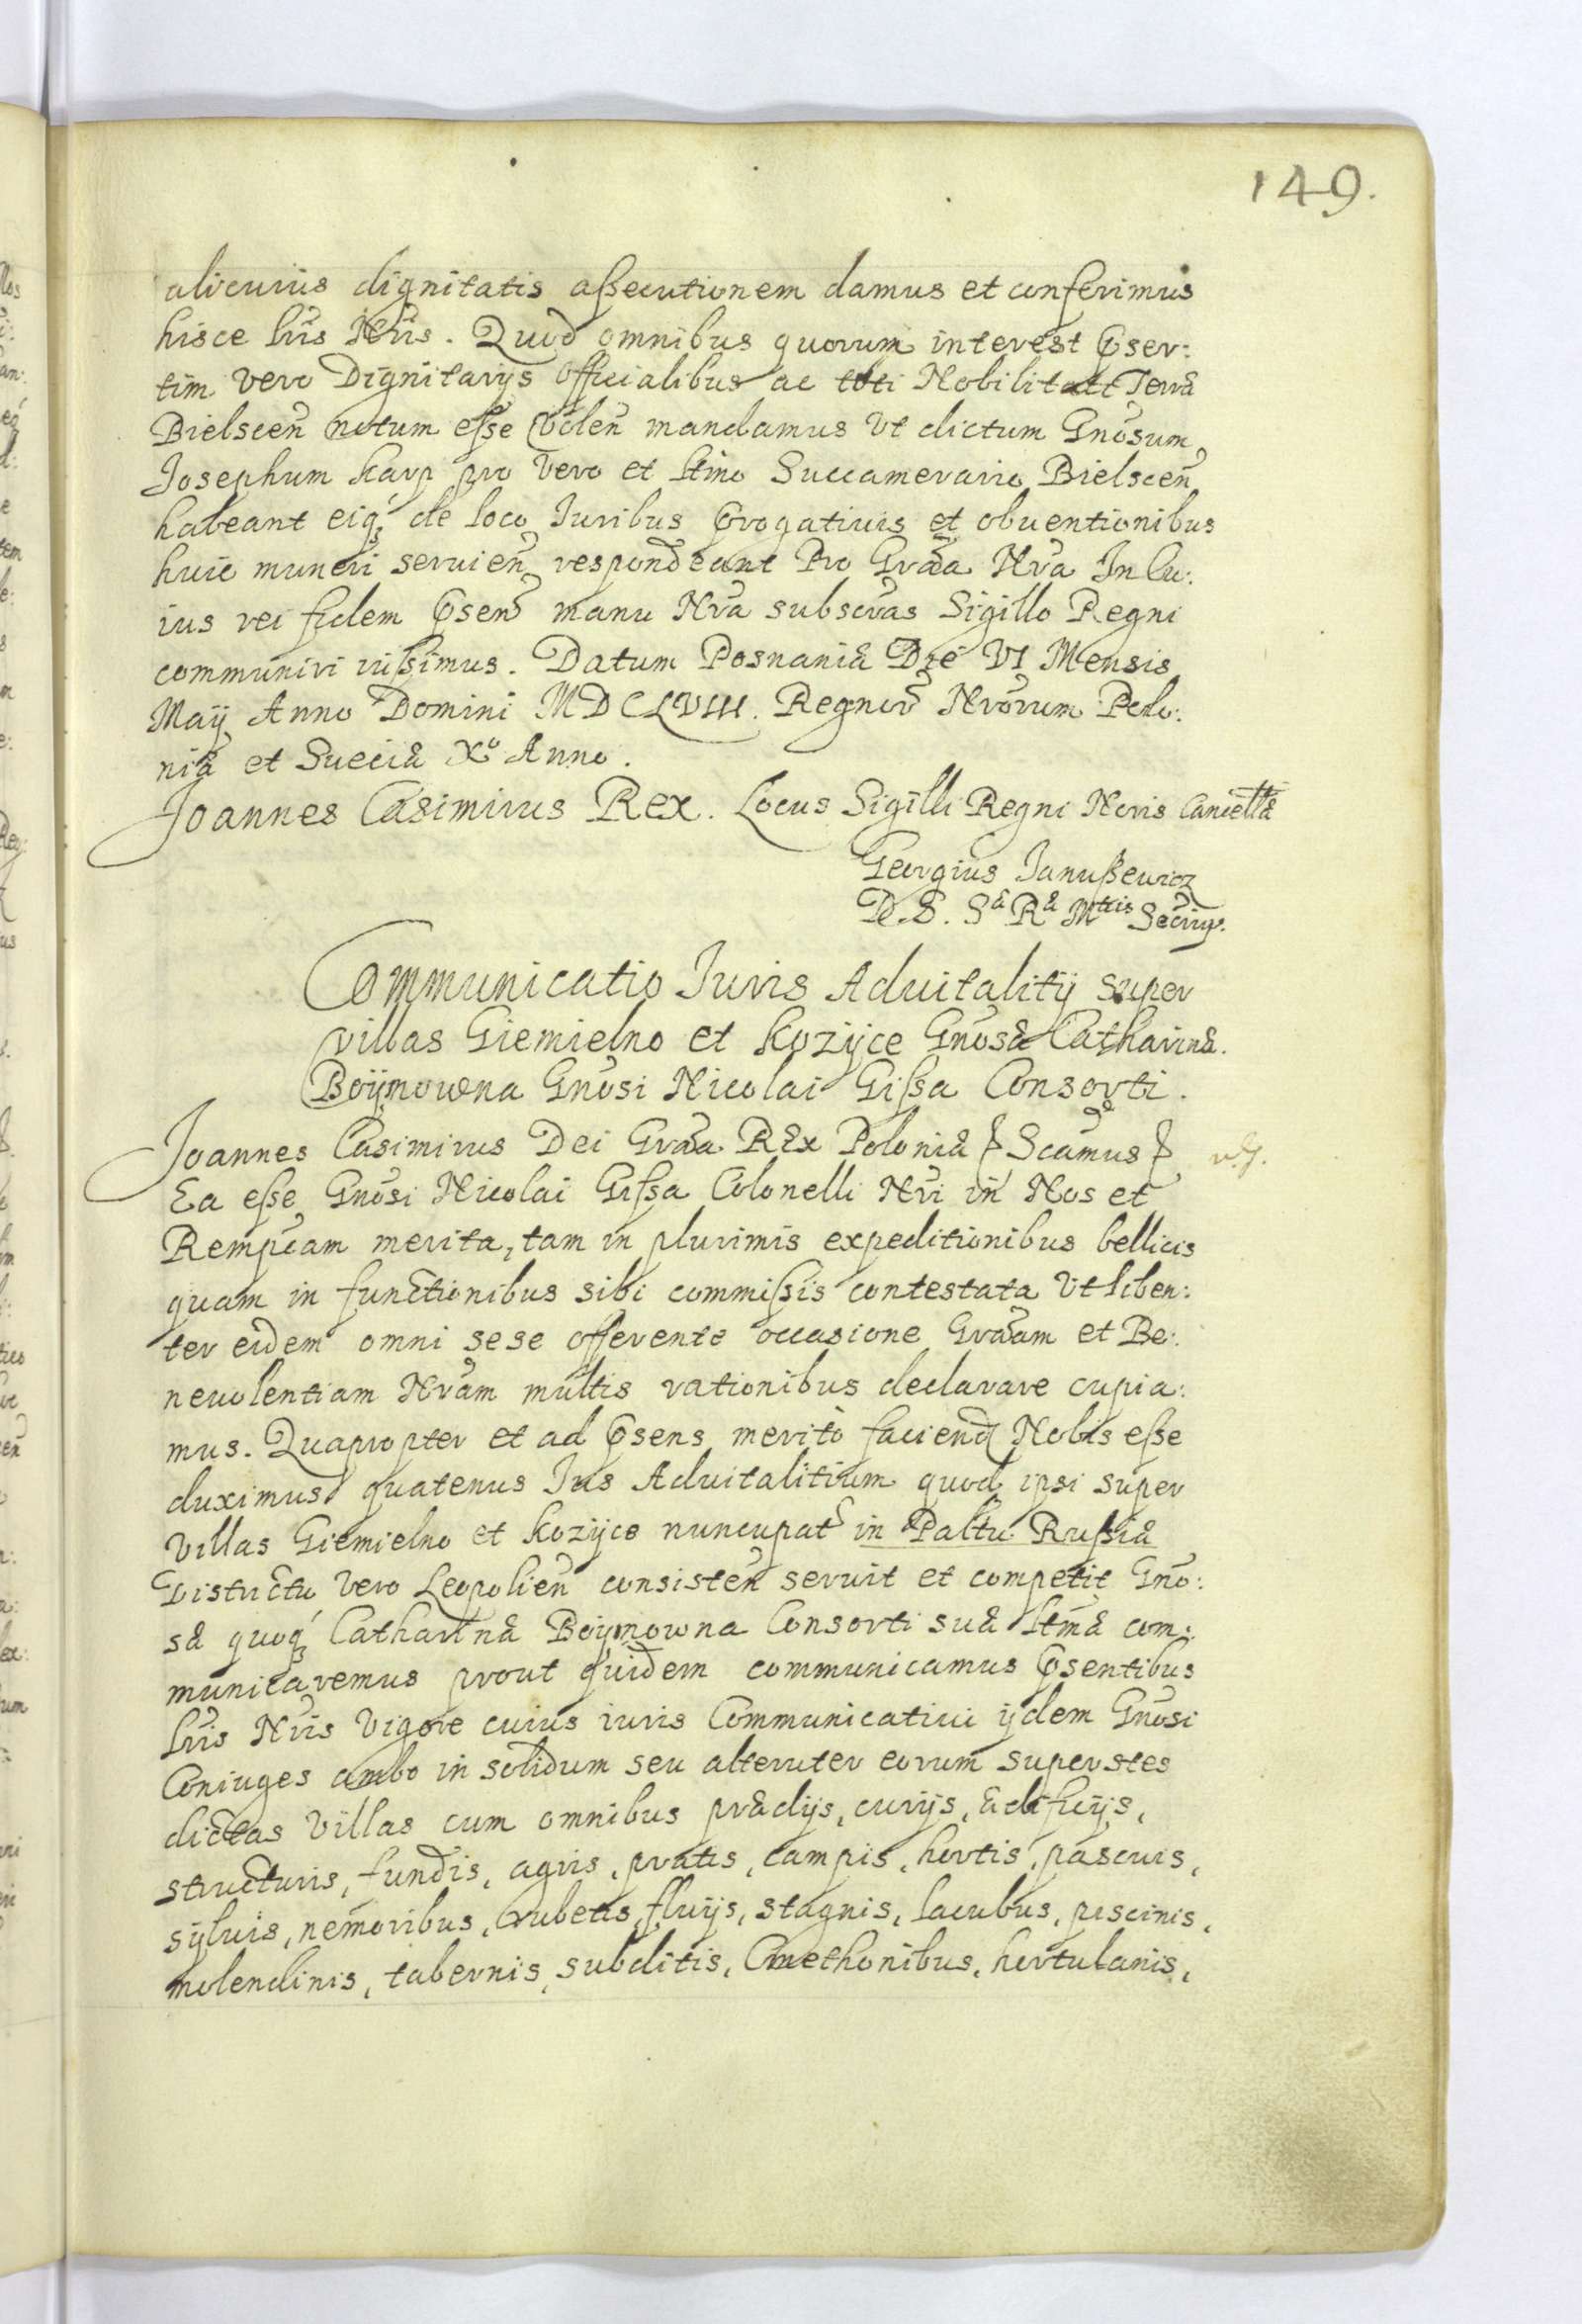 149.
alicuius dignitatis assecutionem damus et conferimus
hisce Lrīs Nrīs. Quod omnibus quorum interest p̄ser:
tim vero Dignitarÿs Officialibus ac toti Nobilitati Terræ
Bielscen̄ notum esse volen̄ mandamus Vt dictum Gnōsum
Josephum Karp pro Vero et Ltīmo Succamerario Bielscen̄
habeant eiq́ȝ de loco Iuribus p̄rogatiuis et obuentionibus
huic muneri seruien̄ respondeant Pro Grāa Nrā In Cu:
ius rei fidem p̄sen̄ manu Nrā subscrās Sigillo Regni
communiri iussimus. Datum Posnaniæ Die VI Mensis
Maÿ Anno Domini MDCLVIII. Regnor̄ Nrōrum Polo:
niæ et Sueciæ Xº Anno.
Joannes Casimirus Rex. Locus Sigilli Regni Noris Cancellæ
Georgius Janußewicz
D. S. Sæ Ræ Mttis Secriȳ.
Communicatio Iuris Aduitalitÿ super
villas Giemielno et Kozÿce Gnōsæ Catharinæ
Boÿmowna Gnōsi Nicolai Gissa Consorti.
Joannes Casimirus Dei Grāa Rex Poloniæ Scamus
Ea esse Gnōsi Nicolai Gissa Colonelli Nrī in Nos et
Rempcām merita, tam in plurimis expeditionibus bellicis
quam in functionibus sibi commissis contestata Vt liben:
ter eidem omni sese offerente occasione Grāam et Be:
neuolentiam Nrām multis rationibus declarare cupia:
mus. Quapropter et ad p̄sens meritò faciend̄ Nobis esse
duximus quatenus Ius Aduitalitium quod ipsi super
Villas Giemielno et Kozÿce nuncupat̄ in Paltu Russiæ
Districtu Vero Leopolien̄ consisten̄ seruit et competit Gnō:
sæ quoq́ȝ Catharinæ Boÿmowna Consorti suæ Ltmæ com:
municaremus prout quidem communicamus p̄sentibus
Lrīs Nrīs Vigore cuius iuris Communicatiui ÿdem Gnōsi
Coniuges ambo in solidum seu alteruter eorum superstes
dictas Villas cum omnibus prædÿs, curÿs, ædificÿs,
structuris, fundis, agris, pratis, campis, hortis, pascuis,
syluis, nemoribus, rubetis, fluÿs, stagnis, lacubus, piscinis,
molendinis, tabernis, subditis, Cmethonibus, hortulanis,